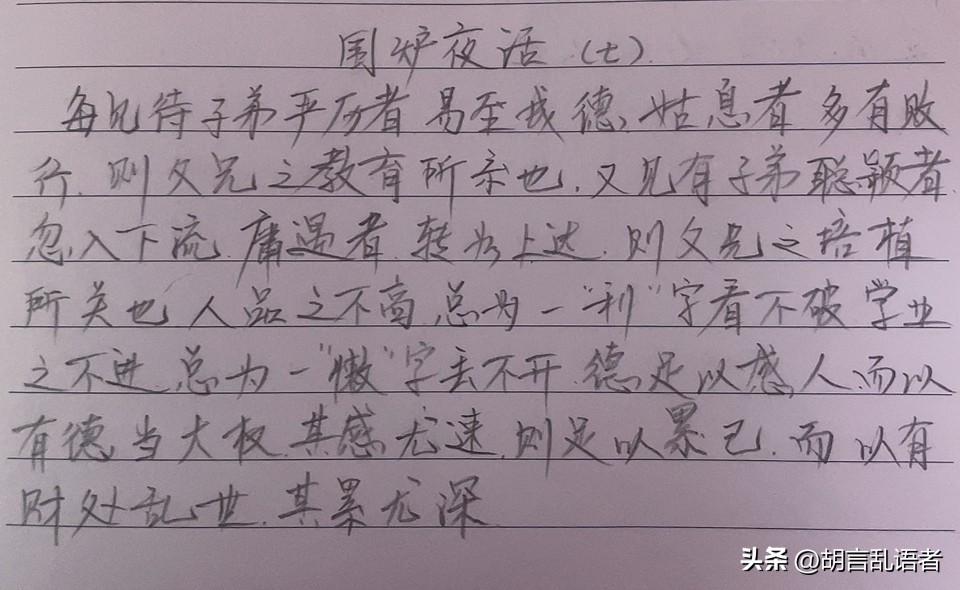 围炉夜话（七）
每见待子弟严厉者 易至成德，姑息者 多有败
行，则父兄之教育所系也，又见有子弟聪颖者
忽入下流，庸遇者，转为上达，则父兄之培植
所关也 人品之不高，总为一“利”字看不破 学业
之不进，总为一“懒”字丢不开，德足以感人，而以
有德当大权，其感尤速，则足以累己，而以有
财处乱世，其累尤深
头条 @胡言乱语者